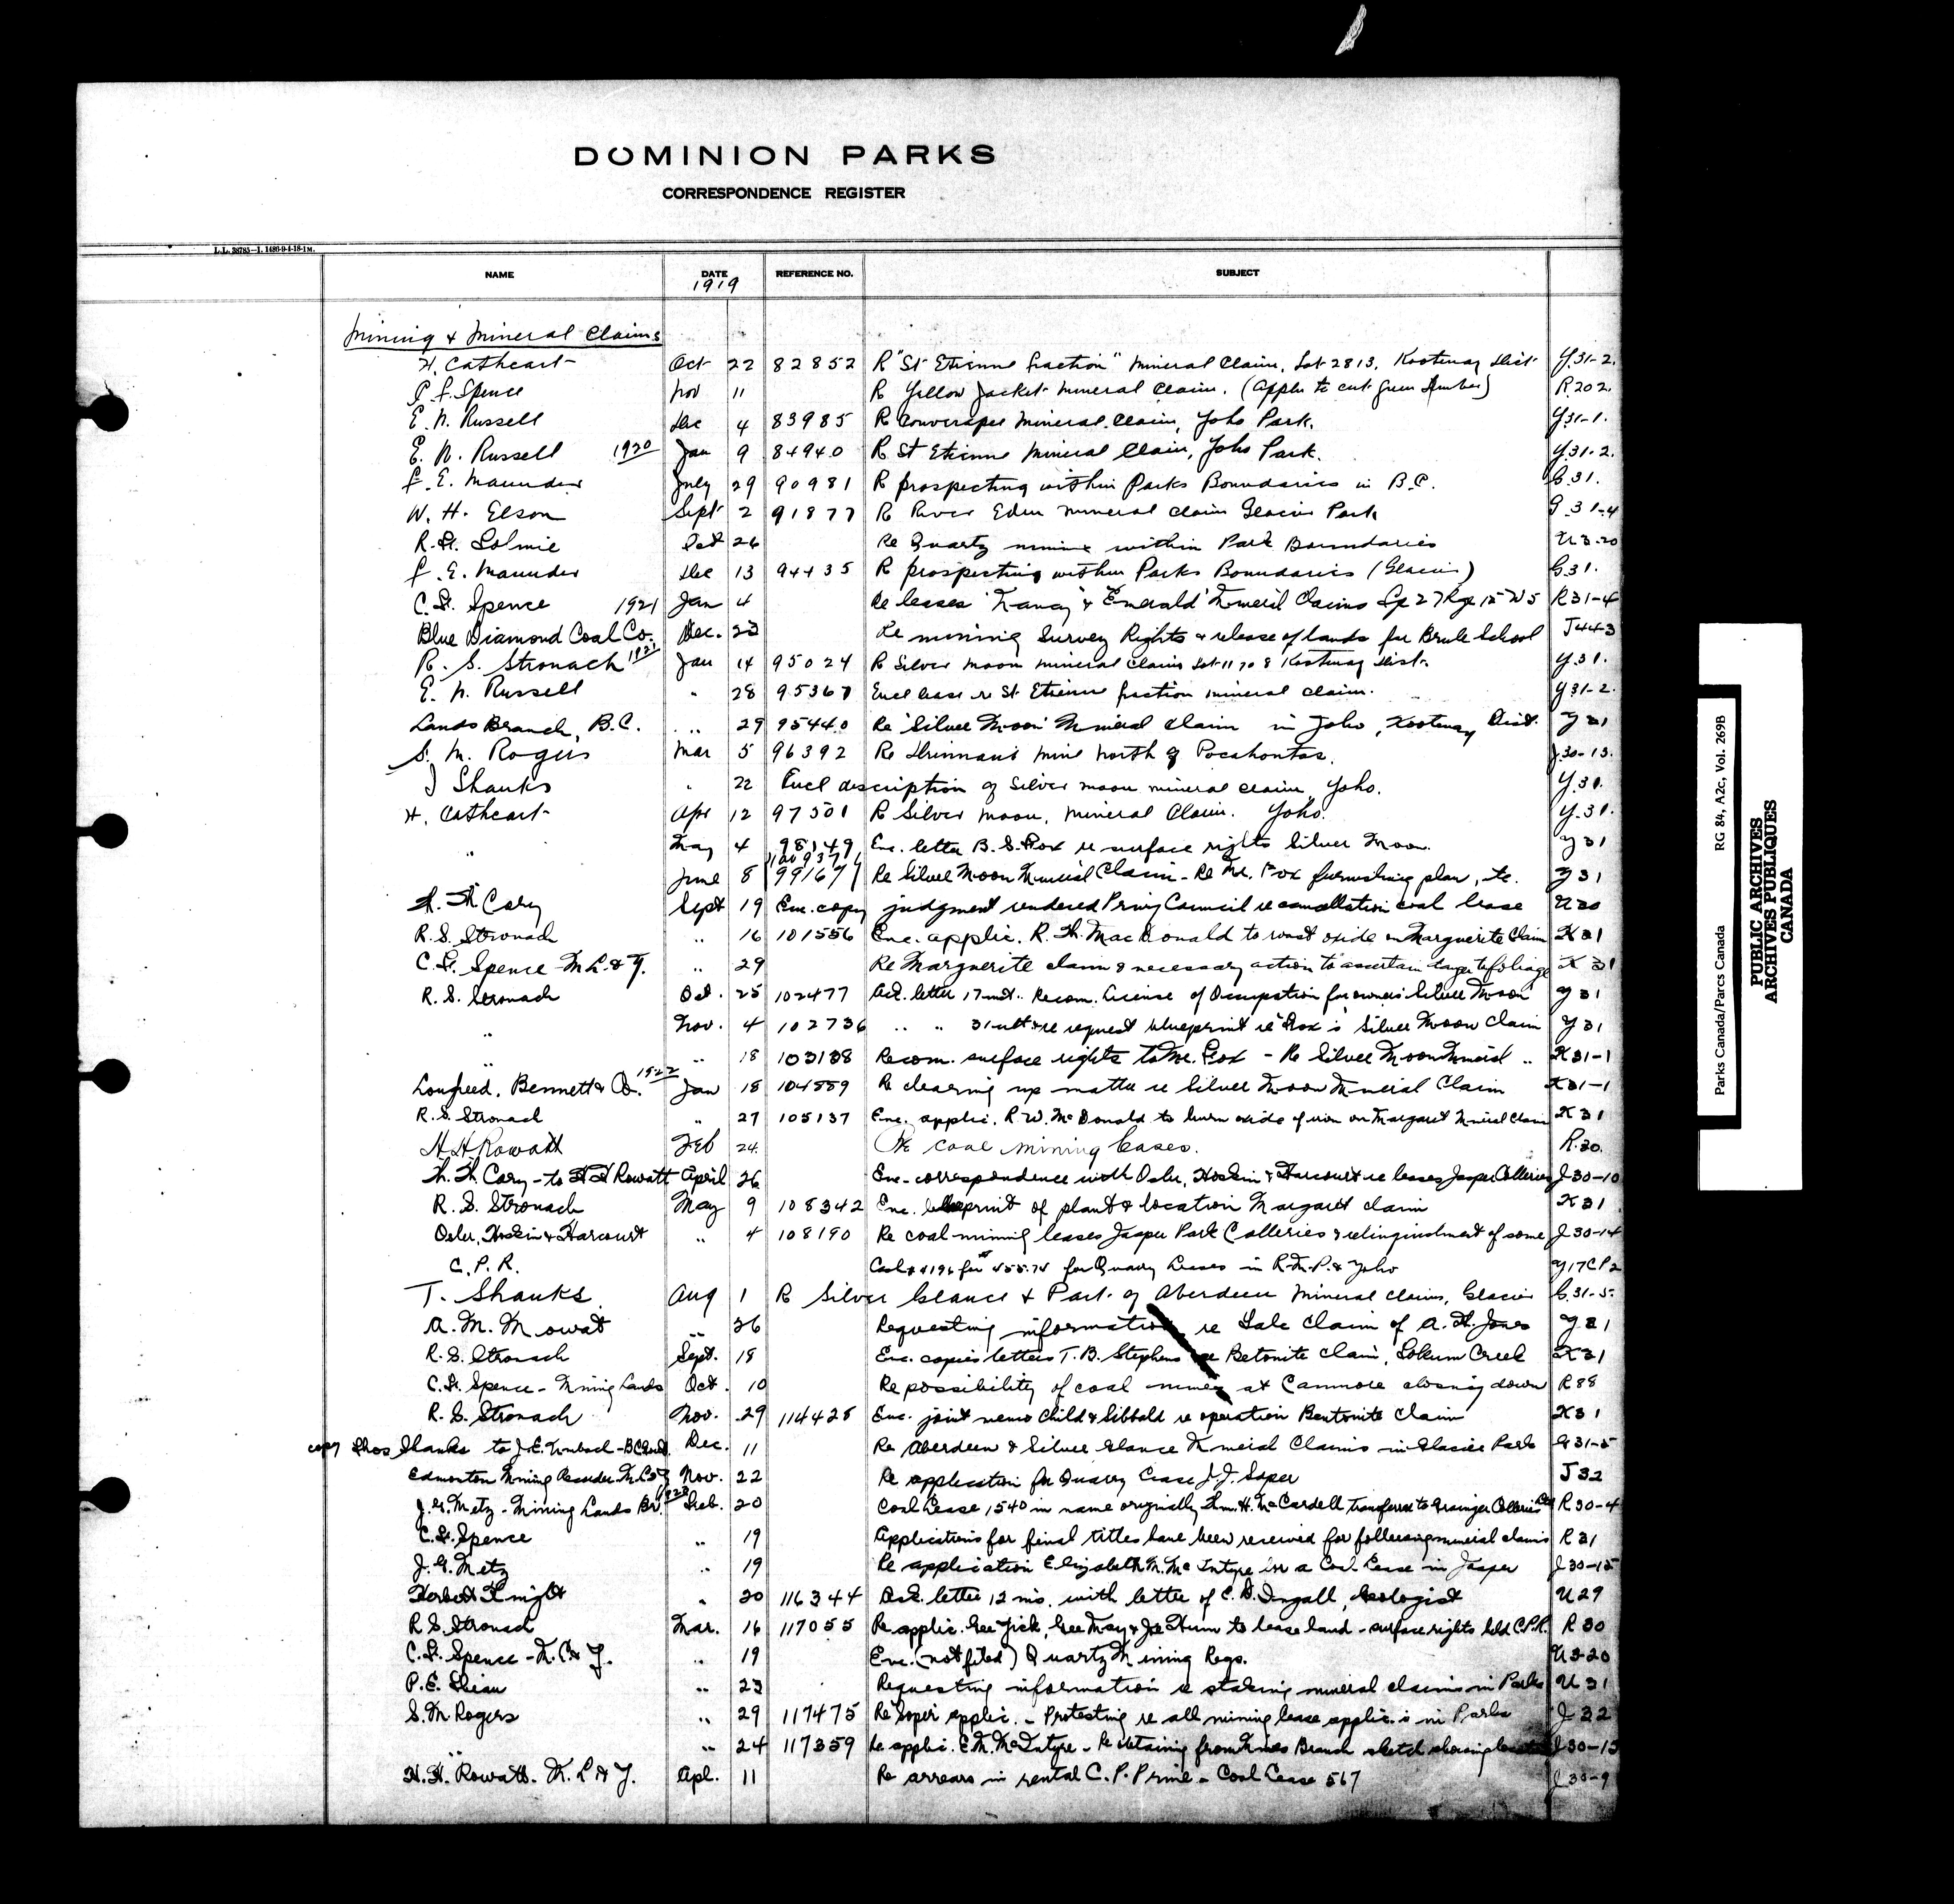 DOMINION PARKS
CORRESPONDENCE REGISTER
L.L. 38785—1. 1486-9-4-18-1M.
NAME DATE REFERENCE NO. SUBJECT
1919
Mining & Mineral Claims
H. Cathcart Oct 22 82852 R "St Etienne fraction" Mineral Claim, Lot 2813, Kootenay Dist Y.31-2.
Spence Nov 11 R Yellow Jacket Mineral Claim. (Appln to cut green timber) R202.
E. N. Russell Dec 4 83985 R Mineral Claim, Yoho Park. Y31-1.
E. N. Russell 1920 Jan 9 84940 R St Etienne Mineral Claim, Yoho Park. Y.31-2.
E. Maunder July 29 90981 R prospecting within Parks Boundaries in B.C. G.31.
W. H. Elson Sept 2 91877 R River Eden Mineral Claim Glacier Park G.31-4
Tolmie Oct 26 Re Quartz mining within Park Boundaries U3-20
E. Maunder Dec 13 94435 R prospecting within Parks Boundaries (Glacier) G31.
Spence 1921 Jan 4 Re leases & "Emerald" Mineral Claims 27 Rge 15 W5 R31-4
Blue Diamond Coal Co. Dec. 23 Re mining Survey Rights & release of lands for Brule School J443
R. S. Stronach 1921 Jan 14 95024 R Silver Moon Mineral Claim Lot 11708 Kootenay Dist. Y.31.
E. N. Russell " 28 95367 Encl lease re St Etienne fraction mineral claim. Y31-2.
Lands Branch, B.C. " 29 95440 Re 'Silver Moon' Mineral Claim in Yoho, Kootenay Dist. Y31
S. M. Rogers Mar 5 96392 Re Drinnan's mine North of Pocahontas. J.30-13.
T Shanks " 22 Encl description of Silver moon mineral claim, Yoho. Y.31.
H. Cathcart Apr 12 97501 R Silver moon, Mineral Claim. Yoho. Y.31.
" May 4 98149 Enc. letter B. S. Fox re surface rights Silver Moon. Y31
June 8 99167 Re Silver Moon Mineral Claim - Re Mr. Fox furnishing plan, etc. Y31
Cory Sept 19 Enc. copy judgment rendered Privy Council re cancellation coal lease U30
R.S. Stronach " 16 101556 Enc. applic. R. MacDonald to roast oxide on Marguerite Claim K31
Spence M L & Y. " 29 Re Marguerite claim & necessary action to ascertain danger to foliage K 31
R. S. Stronach Oct. 25 102477 Ack. letter 17 inst. Recom. License of Occupation for owners Silver Moon Y31
" Nov. 4 102736 " " 31 ult. re request blueprint re Fox's Silver Moon Claim Y31
" " 18 103138 Recom. surface rights to Mr. Fox - Re Silver Moon Mineral " K31-1
Lougheed, Bennett & Co. 1922 Jan 18 104559 Re clearing up matter re Silver Moon Mineral Claim K31-1
R.S. Stronach " 27 105137 Enc. applic. R.W. McDonald to burn oxide of iron on Margaret Mineral Claim K31
H H Rowatt Feb 24. Re Coal mining leases. R.30.
Cory - to H H Rowatt April 26 Enc. correspondence with Osler, Hoskin & Harcourt re leases Jasper Collieries J-30-10
R. S. Stronach May 9 108342 Enc. blueprint of plant & location Margaret claim K31
Osler, Hoskin & Harcourt " 4 108190 Re coal mining leases Jasper Park Collieries & relinquishment of some J30-14
C. P. R. for Quarry Leases in R.M.P. & Yoho Y17CP2
T. Shanks Aug 1 R Silver Glance & Part of Aberdeen Mineral claims, Glacier G.31-5.
A. M. Mowat " 26 Requesting information re Claim of Jones Y.31
R. S. Stronach Sept. 18 Enc. copies letters T. B. Stephens re Betonite Claim, Sokum Creek K31
Spence - Mining Lands Oct. 10 Re possibility of coal mines at Canmore closing down R88
R. S. Stronach Nov. 29 114428 Enc. joint memo Child & Sibbald re operation Bentonite Claim K31
copy Thos Shanks to J.E. Dec. 11 Re Aberdeen & Silver Glance Mineral Claims in Glacier Park G31-5
Edmonton Mining Recorder Nov. 22 Re application for Quarry Lease J. J. Soper J32
Metz - Mining Lands Br. 1923 Feb. 20 Coal Lease 1540 in name originally H. McCardell transferred to Grainger Collieries R30-4
Spence " 19 Applications for final titles have been received for following mineral claims R31
Metz " 19 Re application Elizabeth M. McIntyre for a Coal Lease in Jasper J30-15
Herbert Knight " 20 116344 Ack. letter 12 ins. with letter of Ingall, Geologist U29
R S. Stronach Mar. 16 117055 Re applic. Gee Yick, Gee May & Joe Hum to lease land - surface rights held C.P.R. R30
Spence - M. L & Y. " 19 Enc. (not filed) Quartz Mining Regs. U3-20
P. E. " 23 Requesting information re staking mineral claims in Parks U31
S. M Rogers " 29 117475 Re Soper applic. - Protesting re all mining lease applic.s in Parks J32
" " 24 117359 Re applic. E.M. McIntyre - Re obtaining from Mines Branch sketch showing J30-15
H. H. Rowatt. M. L & Y. Apl. 11 Re arrears in rental C. P. Prine - Coal Lease 567 J30-9
Parks Canada/Parcs Canada RG 84, A2c, Vol. 269B
PUBLIC ARCHIVES
ARCHIVES PUBLIQUES
CANADA